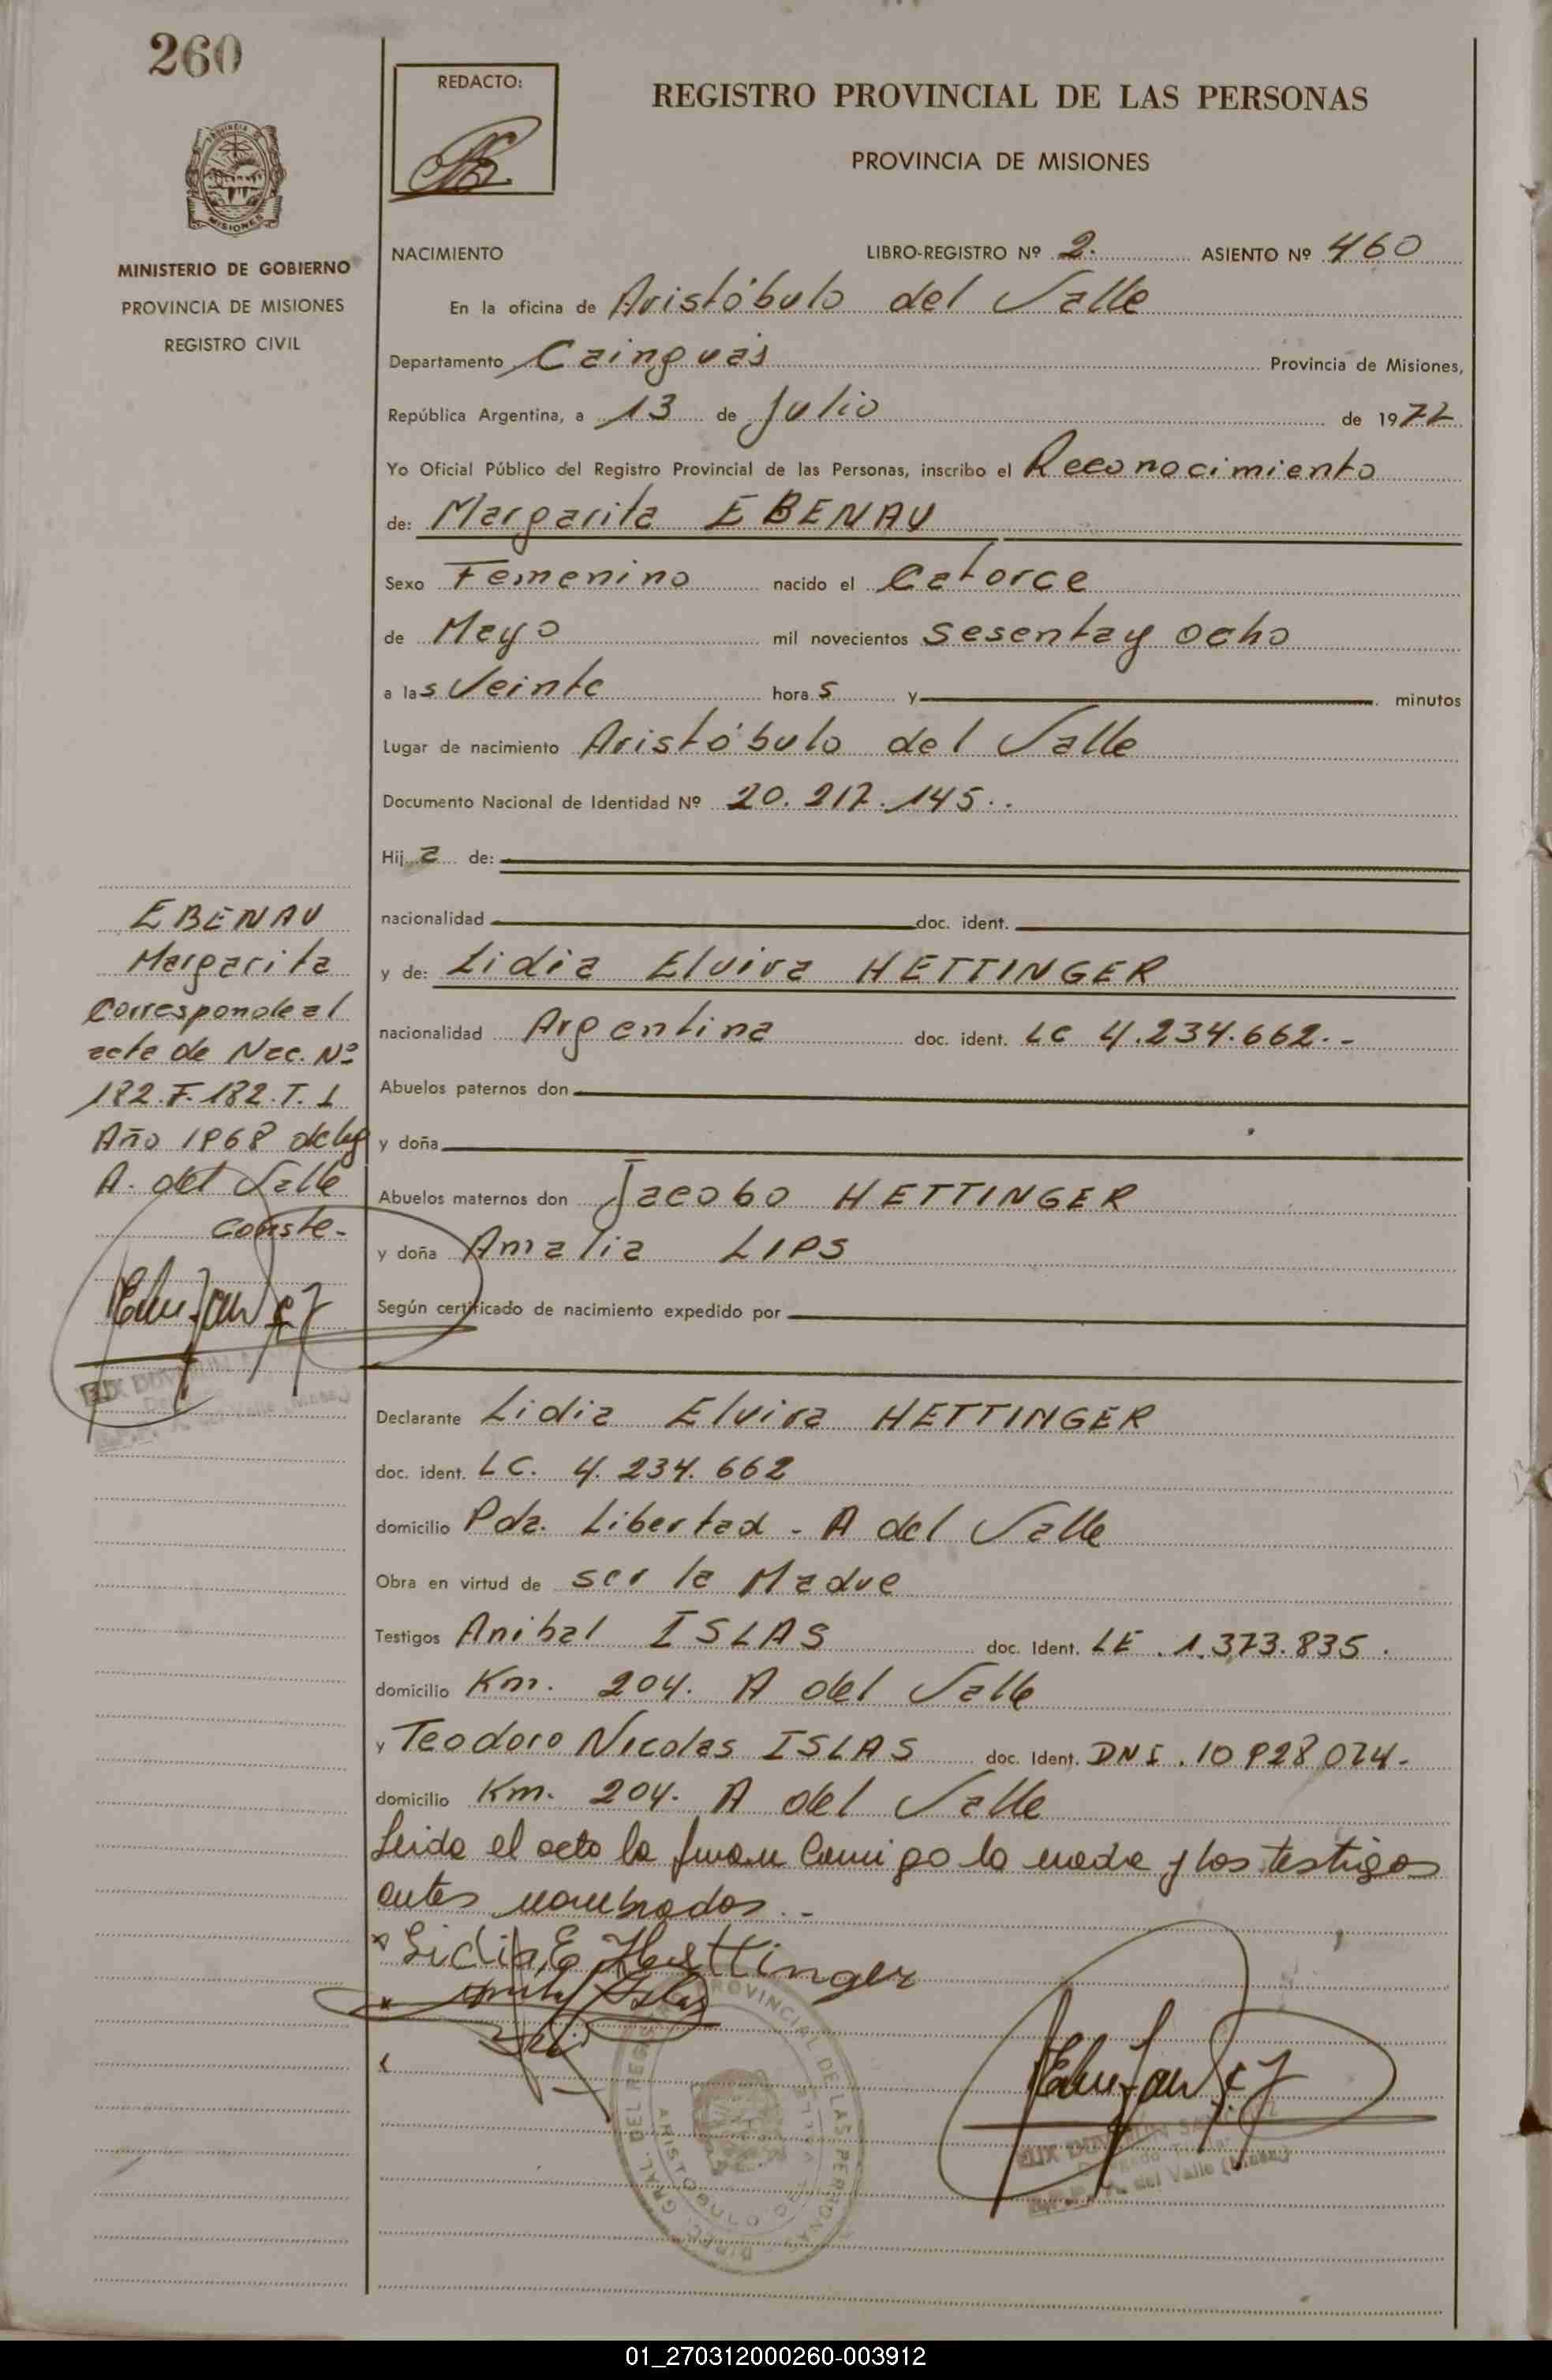 260
REDACTO:
REGISTRO PROVINCIAL DE LAS PERSONAS
PROVINCIA DE MISIONES
MISIONES
MINISTERIO DE GOBIERNO
PROVINCIA DE MISIONES
REGISTRO CIVIL
NACIMIENTO LIBRO-REGISTRO Nº 2. ASIENTO Nº 460
En la oficina de Aristóbulo del Valle
Departamento Cainguás Provincia de Misiones,
República Argentina, a 13 de Julio de 1977
Yo Oficial Público del Registro Provincial de las Personas, inscribo el Reconocimiento
de: Margarita EBENAU
Sexo Femenino nacido el Catorce
de Mayo mil novecientos sesenta y ocho
a las Veinte horas y minutos
Lugar de nacimiento Aristóbulo del Valle
Documento Nacional de Identidad Nº 20.217.145..
Hija de:
nacionalidad doc. ident.
y de: Lidia Elvira HETTINGER
nacionalidad Argentina doc. ident. LC 4.234.662.-
Abuelos paternos don
y doña
Abuelos maternos don Jacobo HETTINGER
y doña Amalia LIPS
Según certificado de nacimiento expedido por
EBENAU
Margarita
Corresponde al
acta de Nac. Nº
182.F.182.T.1
Año 1968 de
A. del Valle
Conste-
Declarante Lidia Elvira HETTINGER
doc. ident. LC. 4.234.662
domicilio Pda. Libertad - A del Valle
Obra en virtud de ser la Madre
Testigos Anibal ISLAS doc. Ident. LE. 1.373.835.
domicilio Km. 204. A del Valle
y Teodoro Nicolas ISLAS doc. Ident. DNI. 10928074-
domicilio Km. 204. A del Valle
Leida el acta la firman conmigo la madre y los testigos
antes nombrados.-
Lidia E Hettinger
PROVINCIAL DE LAS PERSONAS
ARISTOBULO
del Valle
01_270312000260-003912